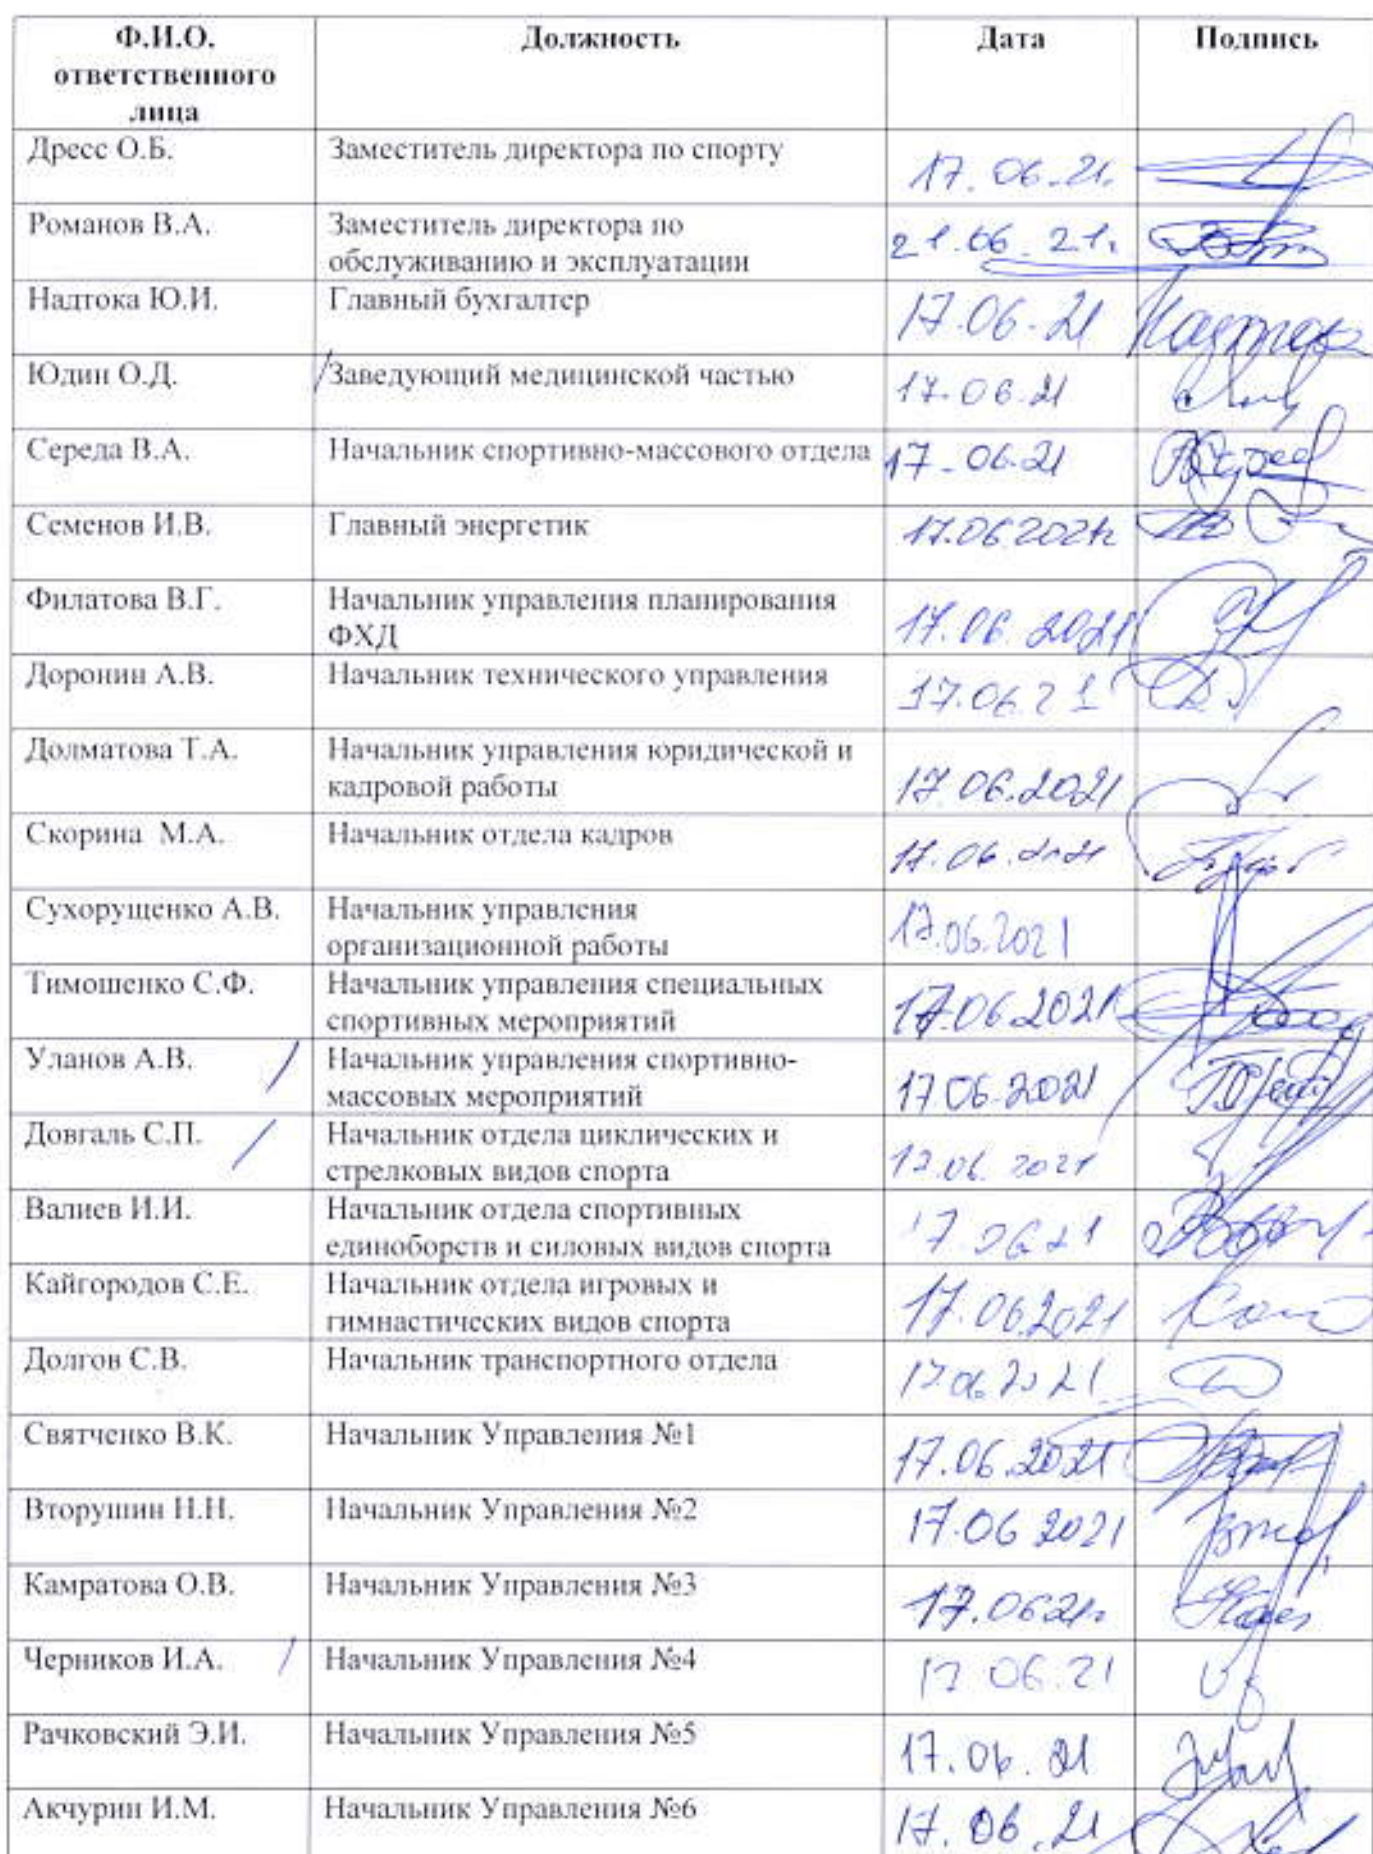 Ф.И.О. ответственного лица Должность Дата Подпись
Дресс О.Б. Заместитель директора по спорту 17.06.21.
Романов В.А. Заместитель директора по обслуживанию и эксплуатации 21.06.21г.
Надтока Ю.И. Главный бухгалтер 17.06.21
Юдин О.Д. Заведующий медицинской частью 17.06.21
Середа В.А. Начальник спортивно-массового отдела 17.06.21
Семенов И.В. Главный энергетик 17.06.2021г
Филатова В.Г. Начальник управления планирования ФХД 17.06.2021
Доронин А.В. Начальник технического управления 17.06.21
Долматова Т.А. Начальник управления юридической и кадровой работы 17.06.2021
Скорина М.А. Начальник отдела кадров 17.06.2021
Сухорущенко А.В. Начальник управления организационной работы 17.06.2021
Тимошенко С.Ф. Начальник управления специальных спортивных мероприятий 17.06.2021
Уланов А.В. Начальник управления спортивно-массовых мероприятий 17.06.2021
Довгаль С.П. Начальник отдела циклических и стрелковых видов спорта 17.06.2021
Валиев И.И. Начальник отдела спортивных единоборств и силовых видов спорта 17.06.21
Кайгородов С.Е. Начальник отдела игровых и гимнастических видов спорта 17.06.2021
Долгов С.В. Начальник транспортного отдела 17.06.2021
Святченко В.К. Начальник Управления №1 17.06.2021
Вторушин Н.Н. Начальник Управления №2 17.06 2021
Камратова О.В. Начальник Управления №3 17.0621г
Черников И.А. Начальник Управления №4 17.06.21
Рачковский Э.И. Начальник Управления №5 17.06.21
Акчурин И.М. Начальник Управления №6 17.06.21